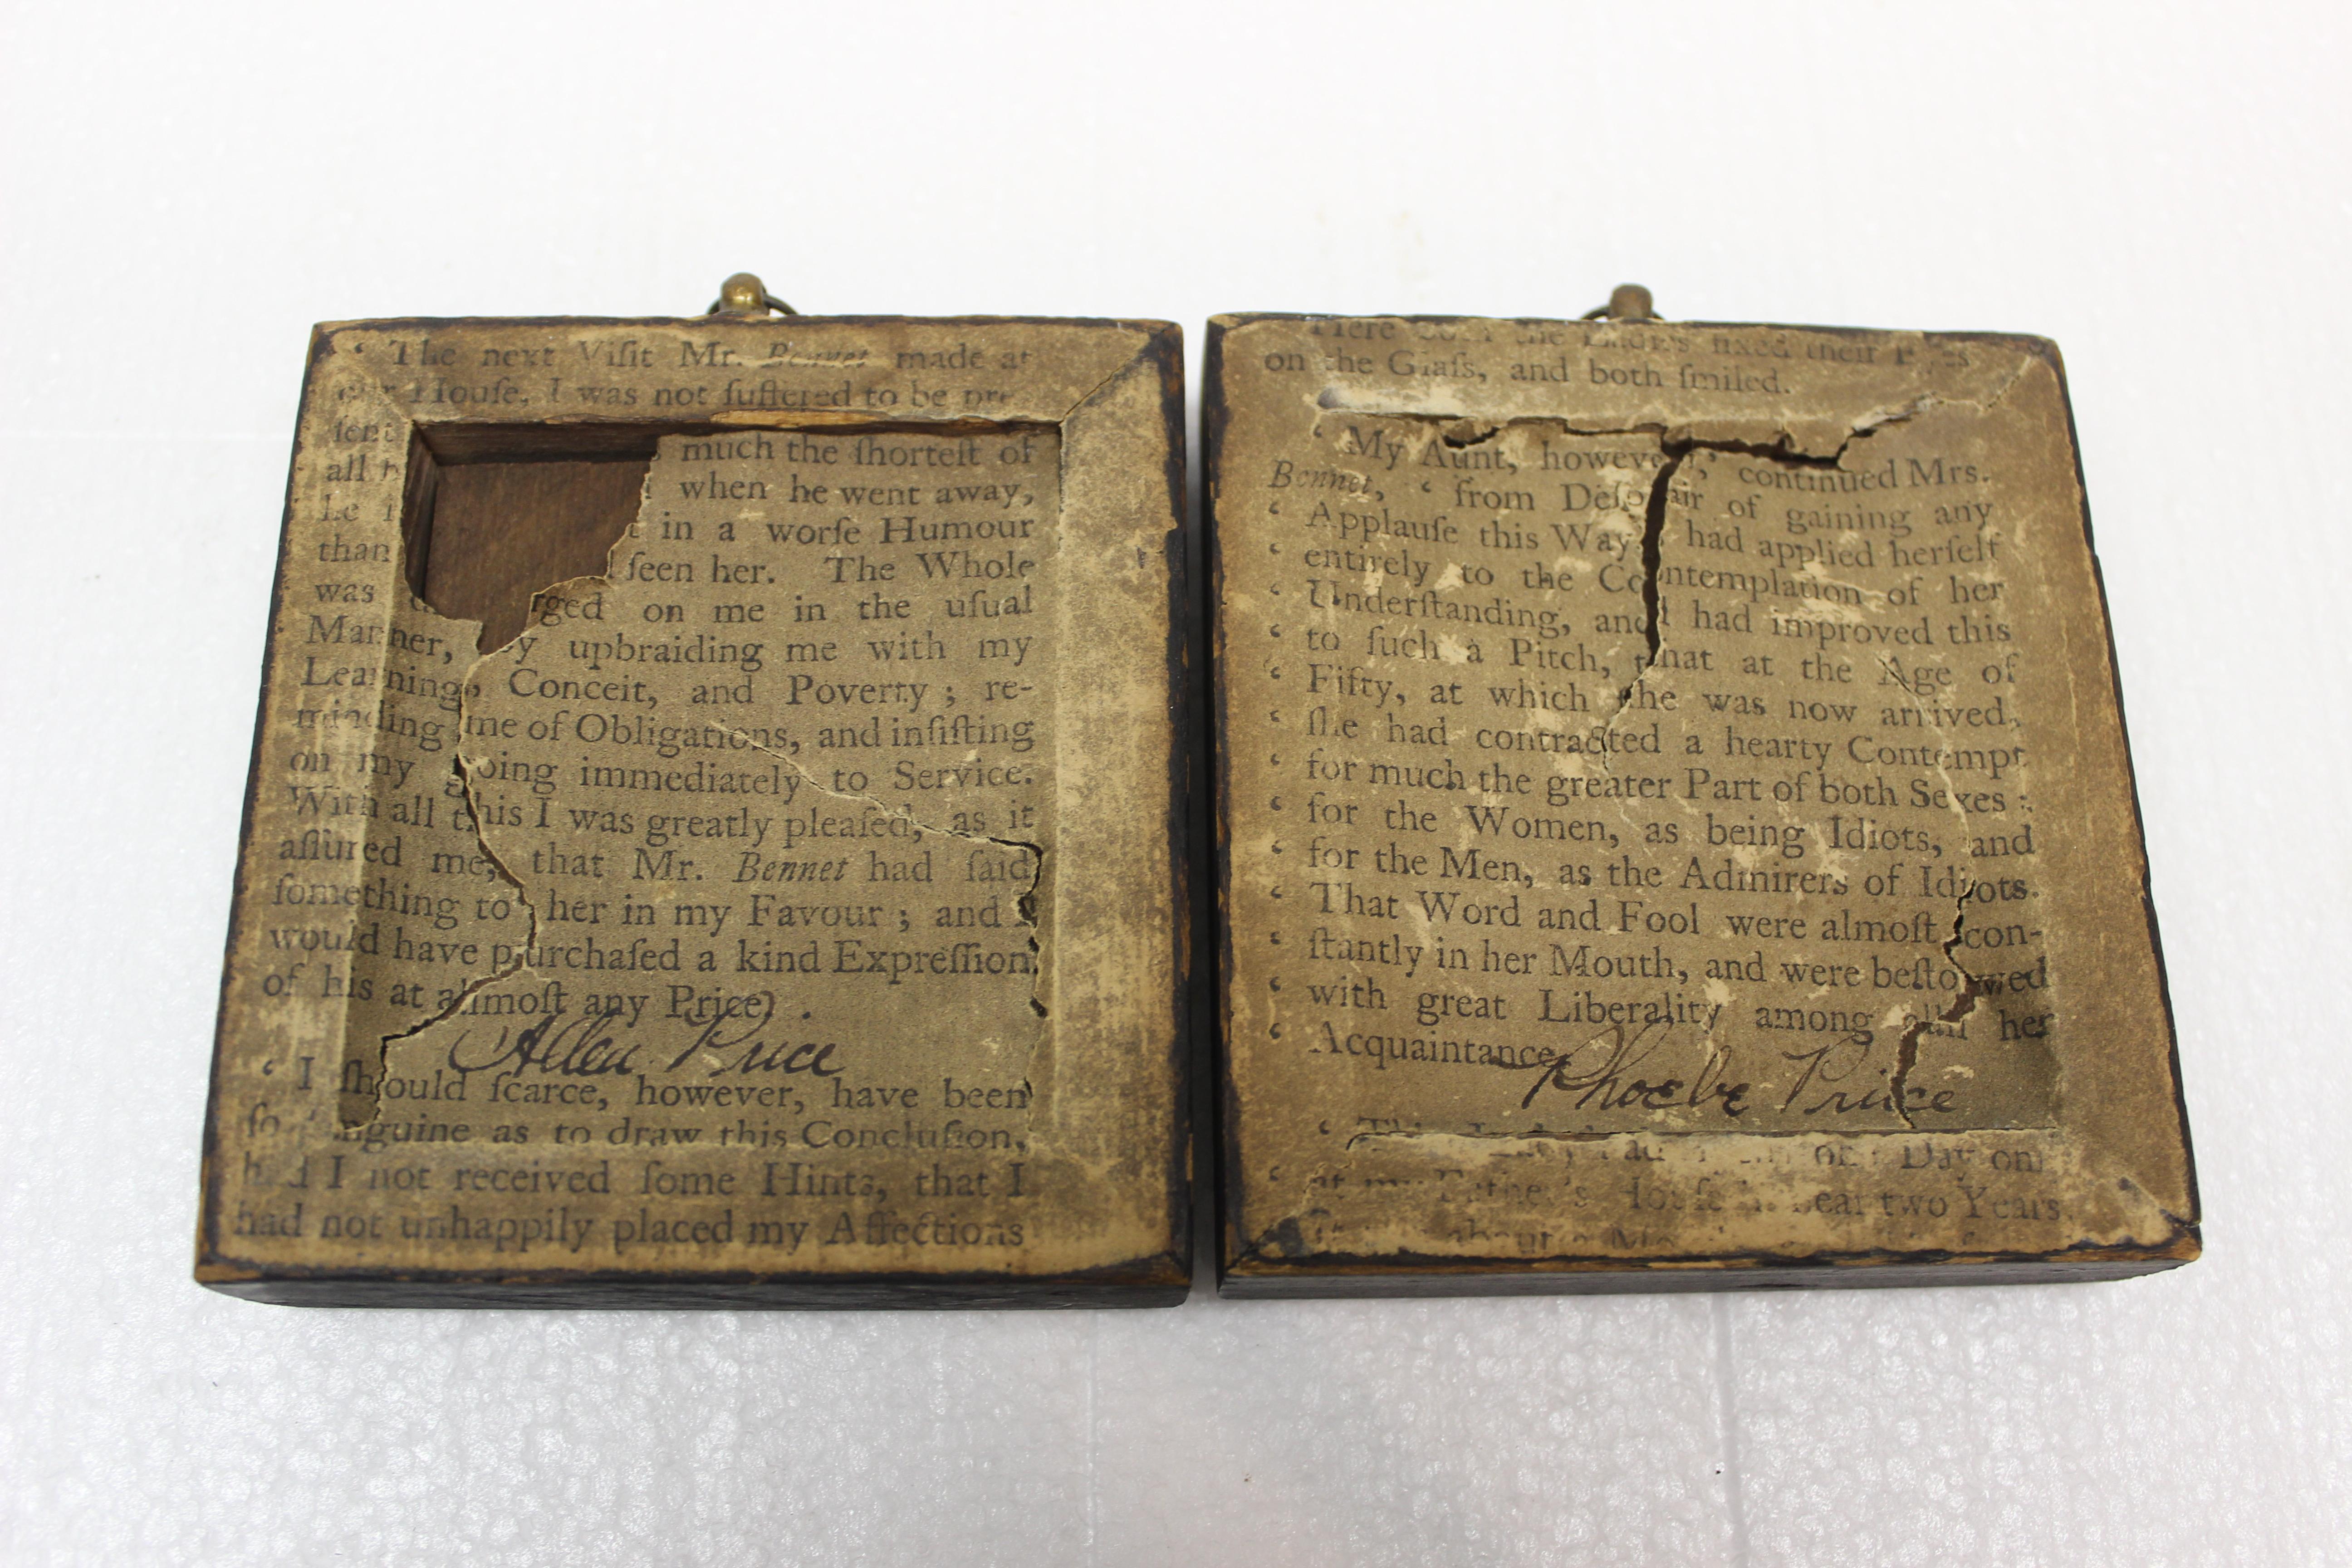 ‘ The next Viſit Mr. Bennet made at
our Houſe, I was not ſuffered to be pre
ſent much the ſhorteſt of
all when he went away,
he in a worſe Humour
than ſeen her. The Whole
was rged on me in the uſual
Manner, by upbraiding me with my
Learning, Conceit, and Poverty ; re-
minding me of Obligations, and inſiſting
on my going immediately to Service.
With all this I was greatly pleaſed, as it
aſſured me, that Mr. Bennet had ſaid
ſomething to her in my Favour ; and I
would have purchaſed a kind Expreſſion
of his at almoſt any Price.
Allen Price
‘ I ſhould ſcarce, however, have been
ſo nguine as to draw this Concluſion,
had I not received ſome Hints, that I
had not unhappily placed my Affections
Here both the Ladies fixed their Eyes
on the Glaſs, and both ſmiled.
‘ My Aunt, however,’ continued Mrs.
Bennet, ‘ from Deſpair of gaining any
‘ Applauſe this Way, had applied herſelf
‘ entirely to the Contemplation of her
‘ Underſtanding, and had improved this
‘ to ſuch a Pitch, that at the Age of
‘ Fifty, at which ſhe was now arrived,
‘ ſhe had contracted a hearty Contempt
‘ for much the greater Part of both Sexes :
‘ for the Women, as being Idiots, and
‘ for the Men, as the Admirers of Idiots.
‘ That Word and Fool were almoſt con-
‘ ſtantly in her Mouth, and were beſtowed
‘ with great Liberality among all her
‘ Acquaintance.
Phoebe Price
‘ This Day on
‘ at my Father's Houſe near two Years
about a